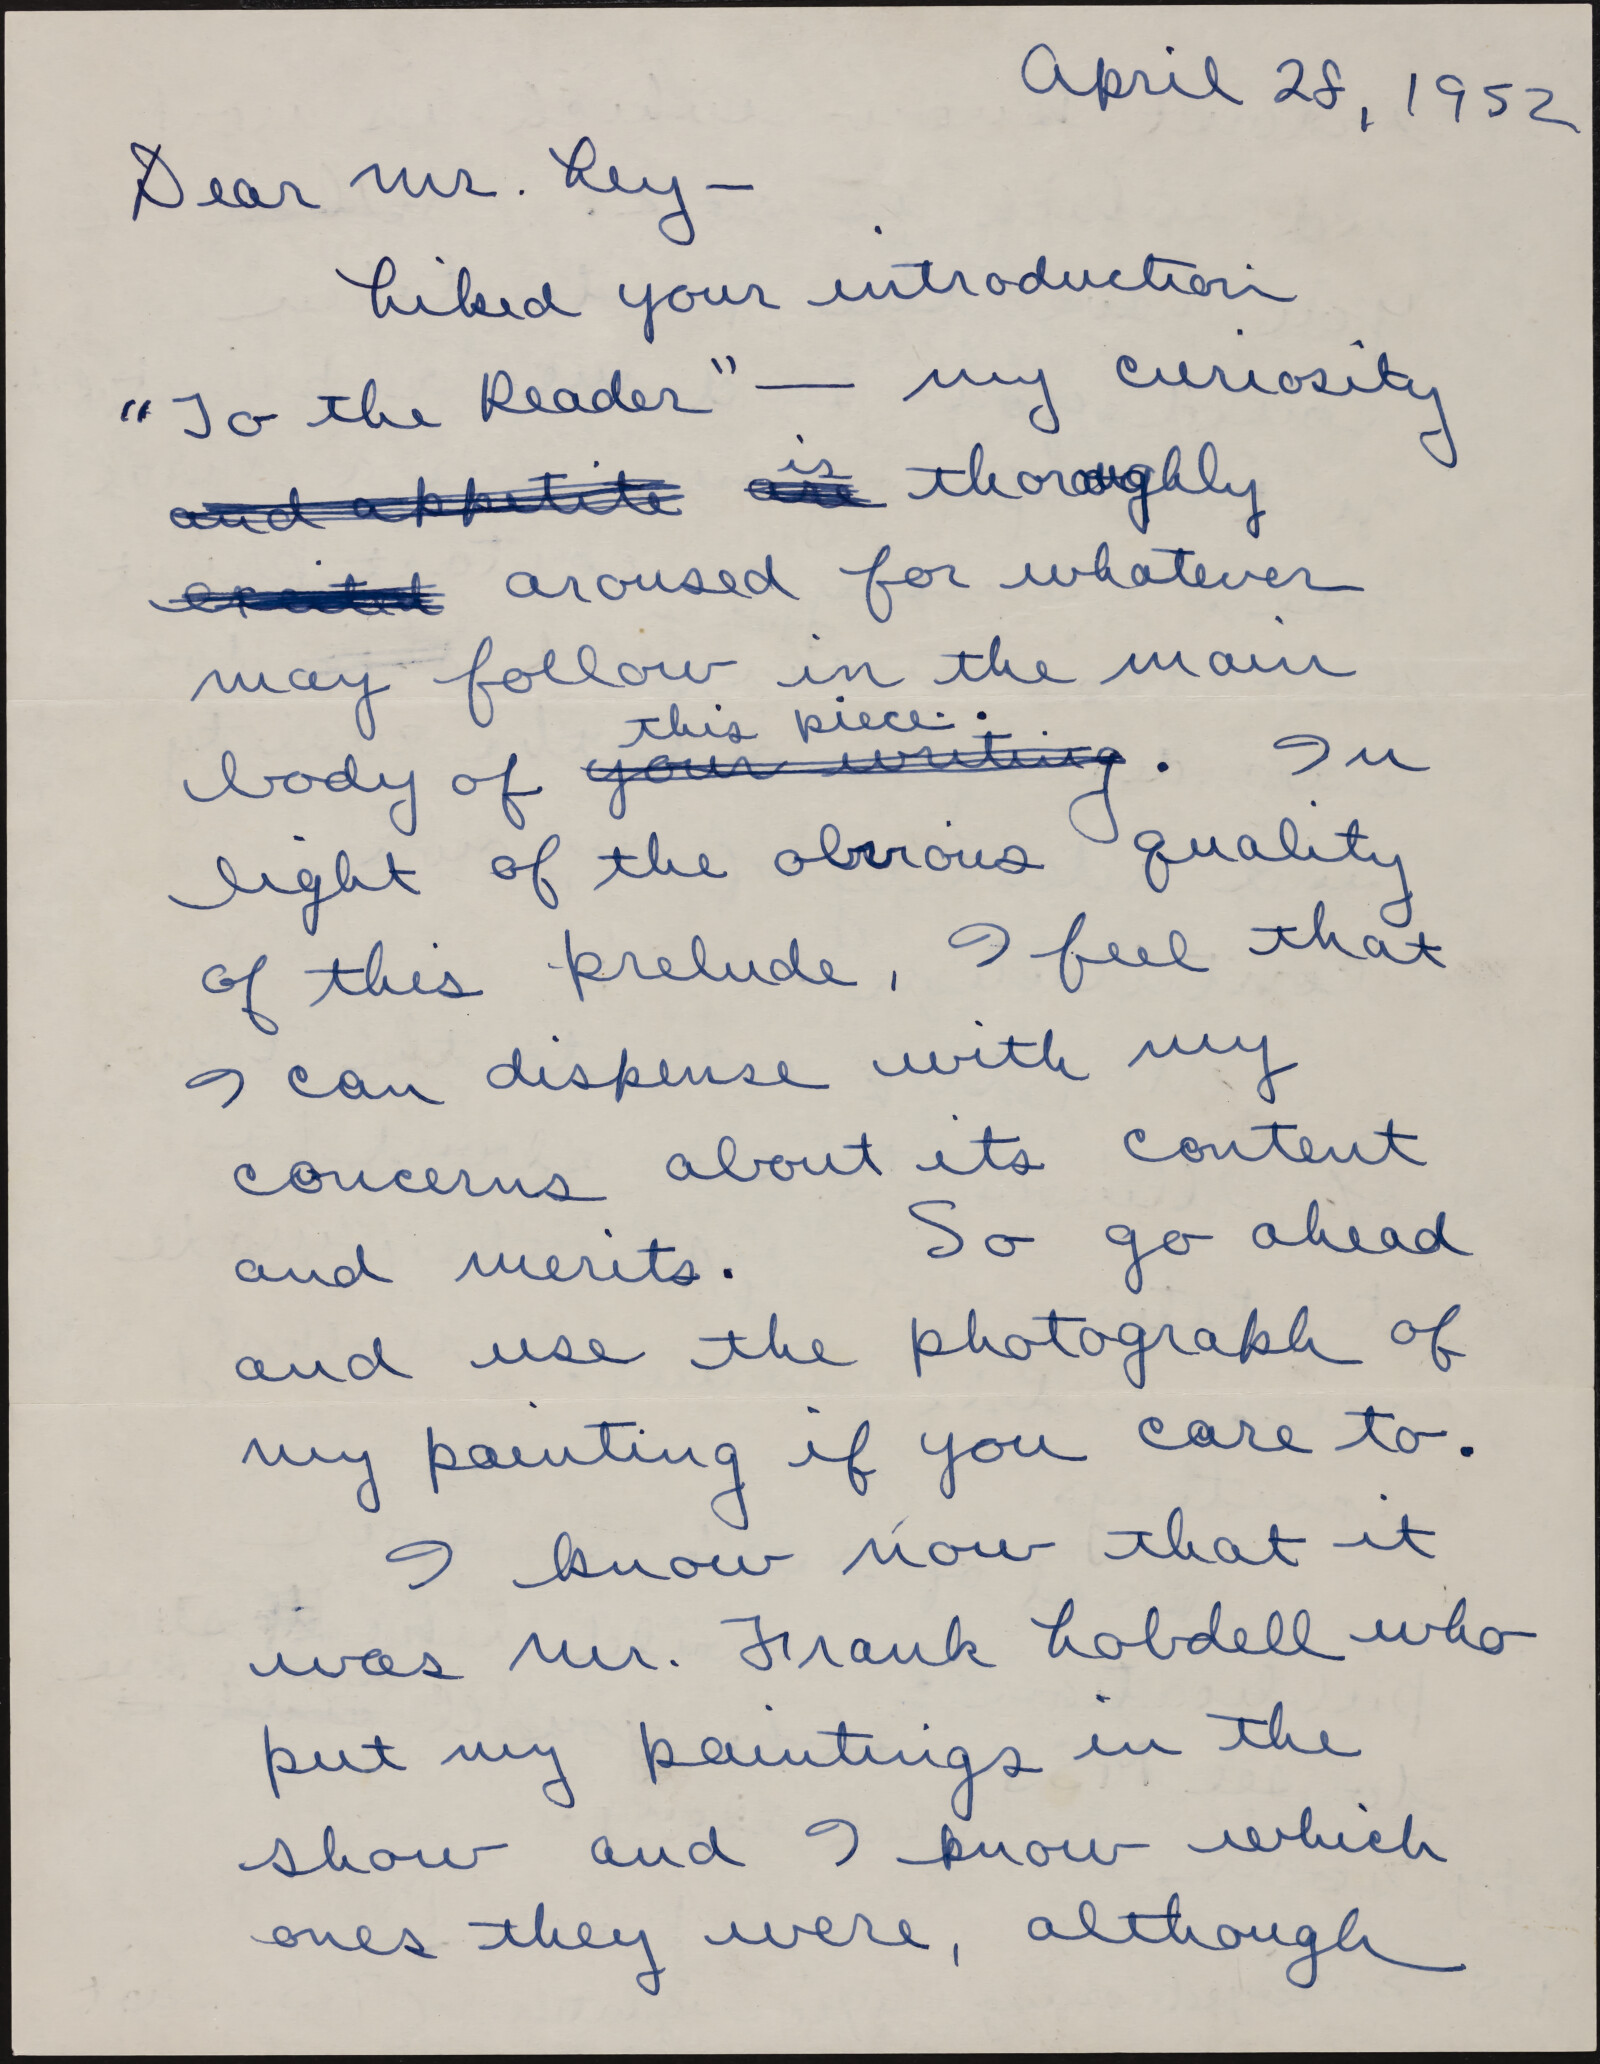 April 28, 1952
Dear Mr. Ley —
Liked your introduction
"To the Reader" — my curiosity
and appetite are is thoroughly
excited aroused for whatever
may follow in the main
this piece.
body of your writing. In
light of the obvious quality
of this prelude, I feel that
I can dispense with my
concerns about its content
and merits. So go ahead
and use the photograph of
my painting if you care to.
I know now that it
was Mr. Frank Lobdell who
put my paintings in the
show and I know which
ones they were, although